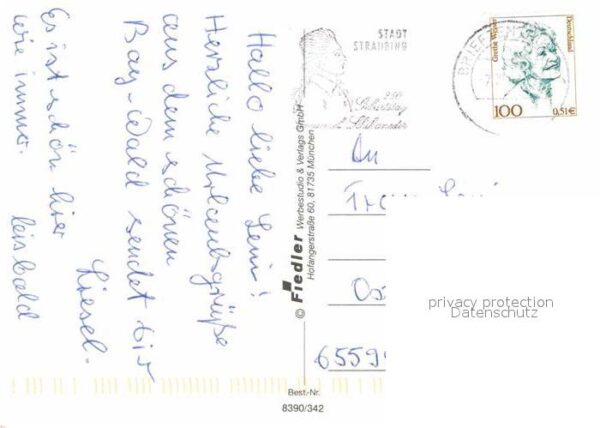 Hallo liebe Leni!
Herzliche Urlaubsgrüße
aus dem schönen
Bay. Wald sendet Dir
Liesel.
Es ist schön hier
wie immer. bis bald
© Fiedler Werbestudio & Verlags GmbH
Hofangerstraße 60, 81735 München
Best.-Nr.
8390/342
STADT
STRAUBING
Geburtstag
BRIEFZENTR
Grethe Weiser
Deutschland
100 0,51€
An
Frau Leni
6559
privacy protection
Datenschutz